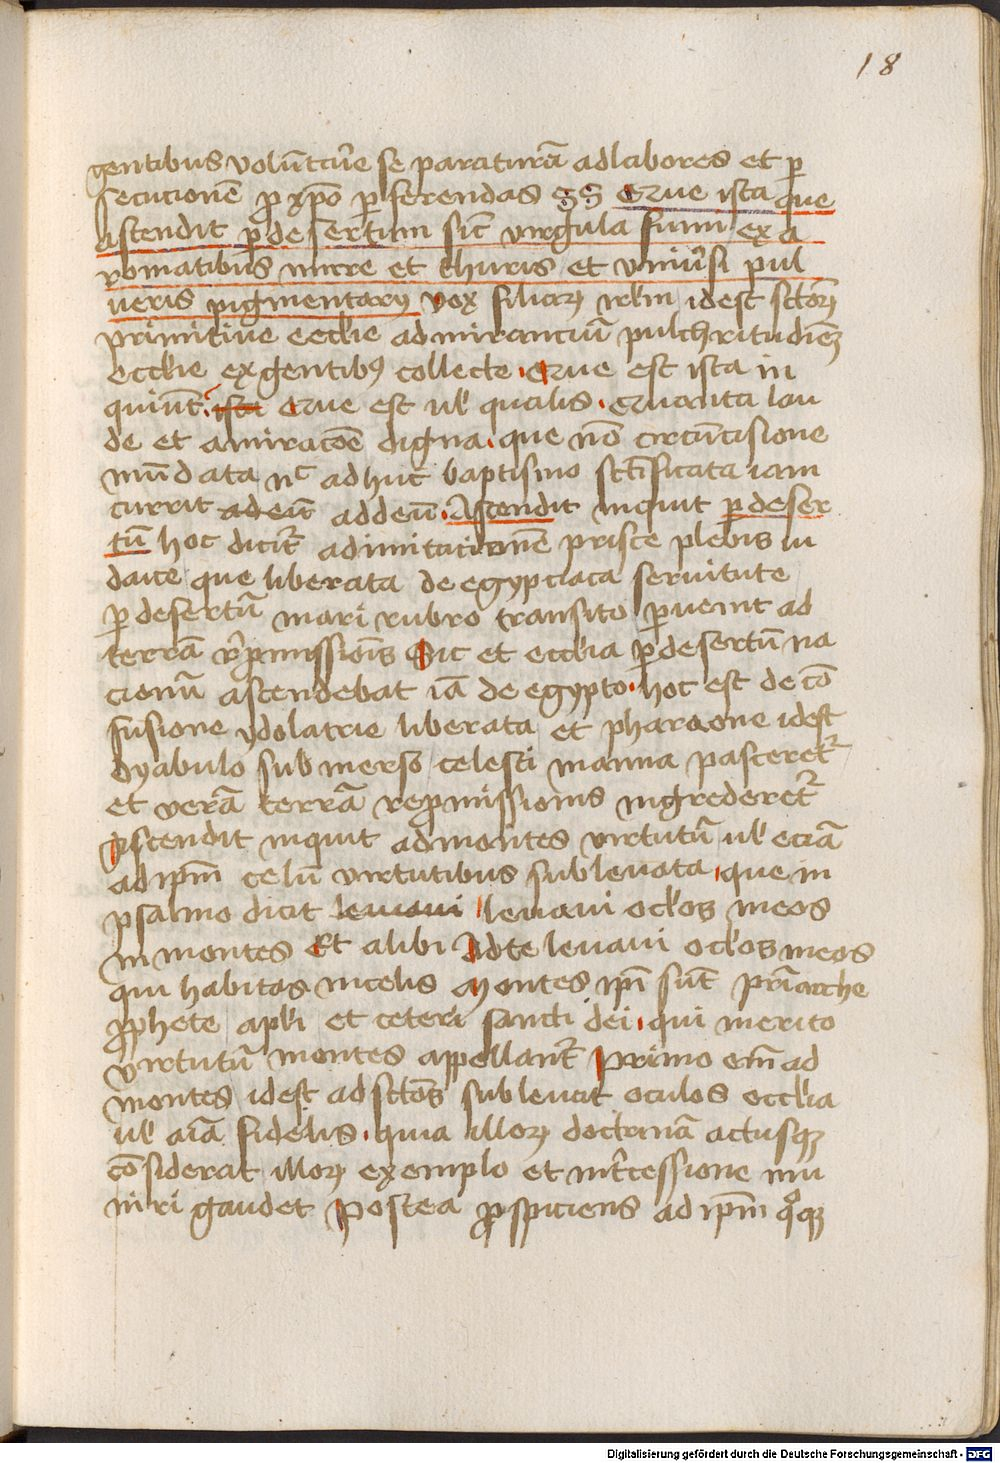 18
gentibus volūtarie se paraturā ad labores et p̱
secucionē p̱ xp̄o p̱ferendas ss Que ista que
ascendit p̱ desertum sic̄ virgula fumi ex a
romatibus mirre et thuris et vniūsi pul
ueris pigmentarꝝ vox filiarꝝ irl̄m idest sctōꝝ
primitiue eccl̄ie admirantiū pulchritudiēȝ
eccl̄ie ex gentibꝰ collecte Que est ista in
quiūt ista Que est ul̄ qualis quanta lau
de et amiracōe digna que nō circūcisione
mūdata nc̄ adhuc baptismo sctīficata iam
currit ad eū ad deū Ascendit inquit p̱ deser
tū hoc dicit᷑ ad imitationē prisce plebis iu
daice que liberata de egypciaca seruitute
p̱ desertū mari rubro transito p̱uenit ad
terrā rep̄missiōis Sic et eccl̄ia p̱ desertū na
cionū ascendebat iā de egypto hoc est de cō
fusione ydolatrie liberata et pharaone idest
dyabulo submerso celesti manna pasceret᷑
et verā terrā rep̱missionis ingrederet᷑
Ascendit inquit ad montes virtutū ul̄ eciā
ad ip̄m celū virtutibus subleuata que in
psalmo dicit leuaui leuaui ocl̄os meos
in montes Et alibi Ad te leuaui ocl̄os meos
qui habitas in celis Montes ip̄i sūt pr̄iarche
p̱phete apl̄i et ceteri sancti dei qui merito
virtutū montes appellant᷑ Primo em̄ ad
montes idest ad sctōs subleuat oculos eccl̄ia
ul̄ aīa fidelis quia illorꝝ doctrinā actusqȝ
cōsiderat illorꝝ exemplo et int̄cessione mu
niri gaudet Postea p̱spiciens ad ip̄m qͦqȝ
Digitalisierung gefördert durch die Deutsche Forschungsgemeinschaft - DFG